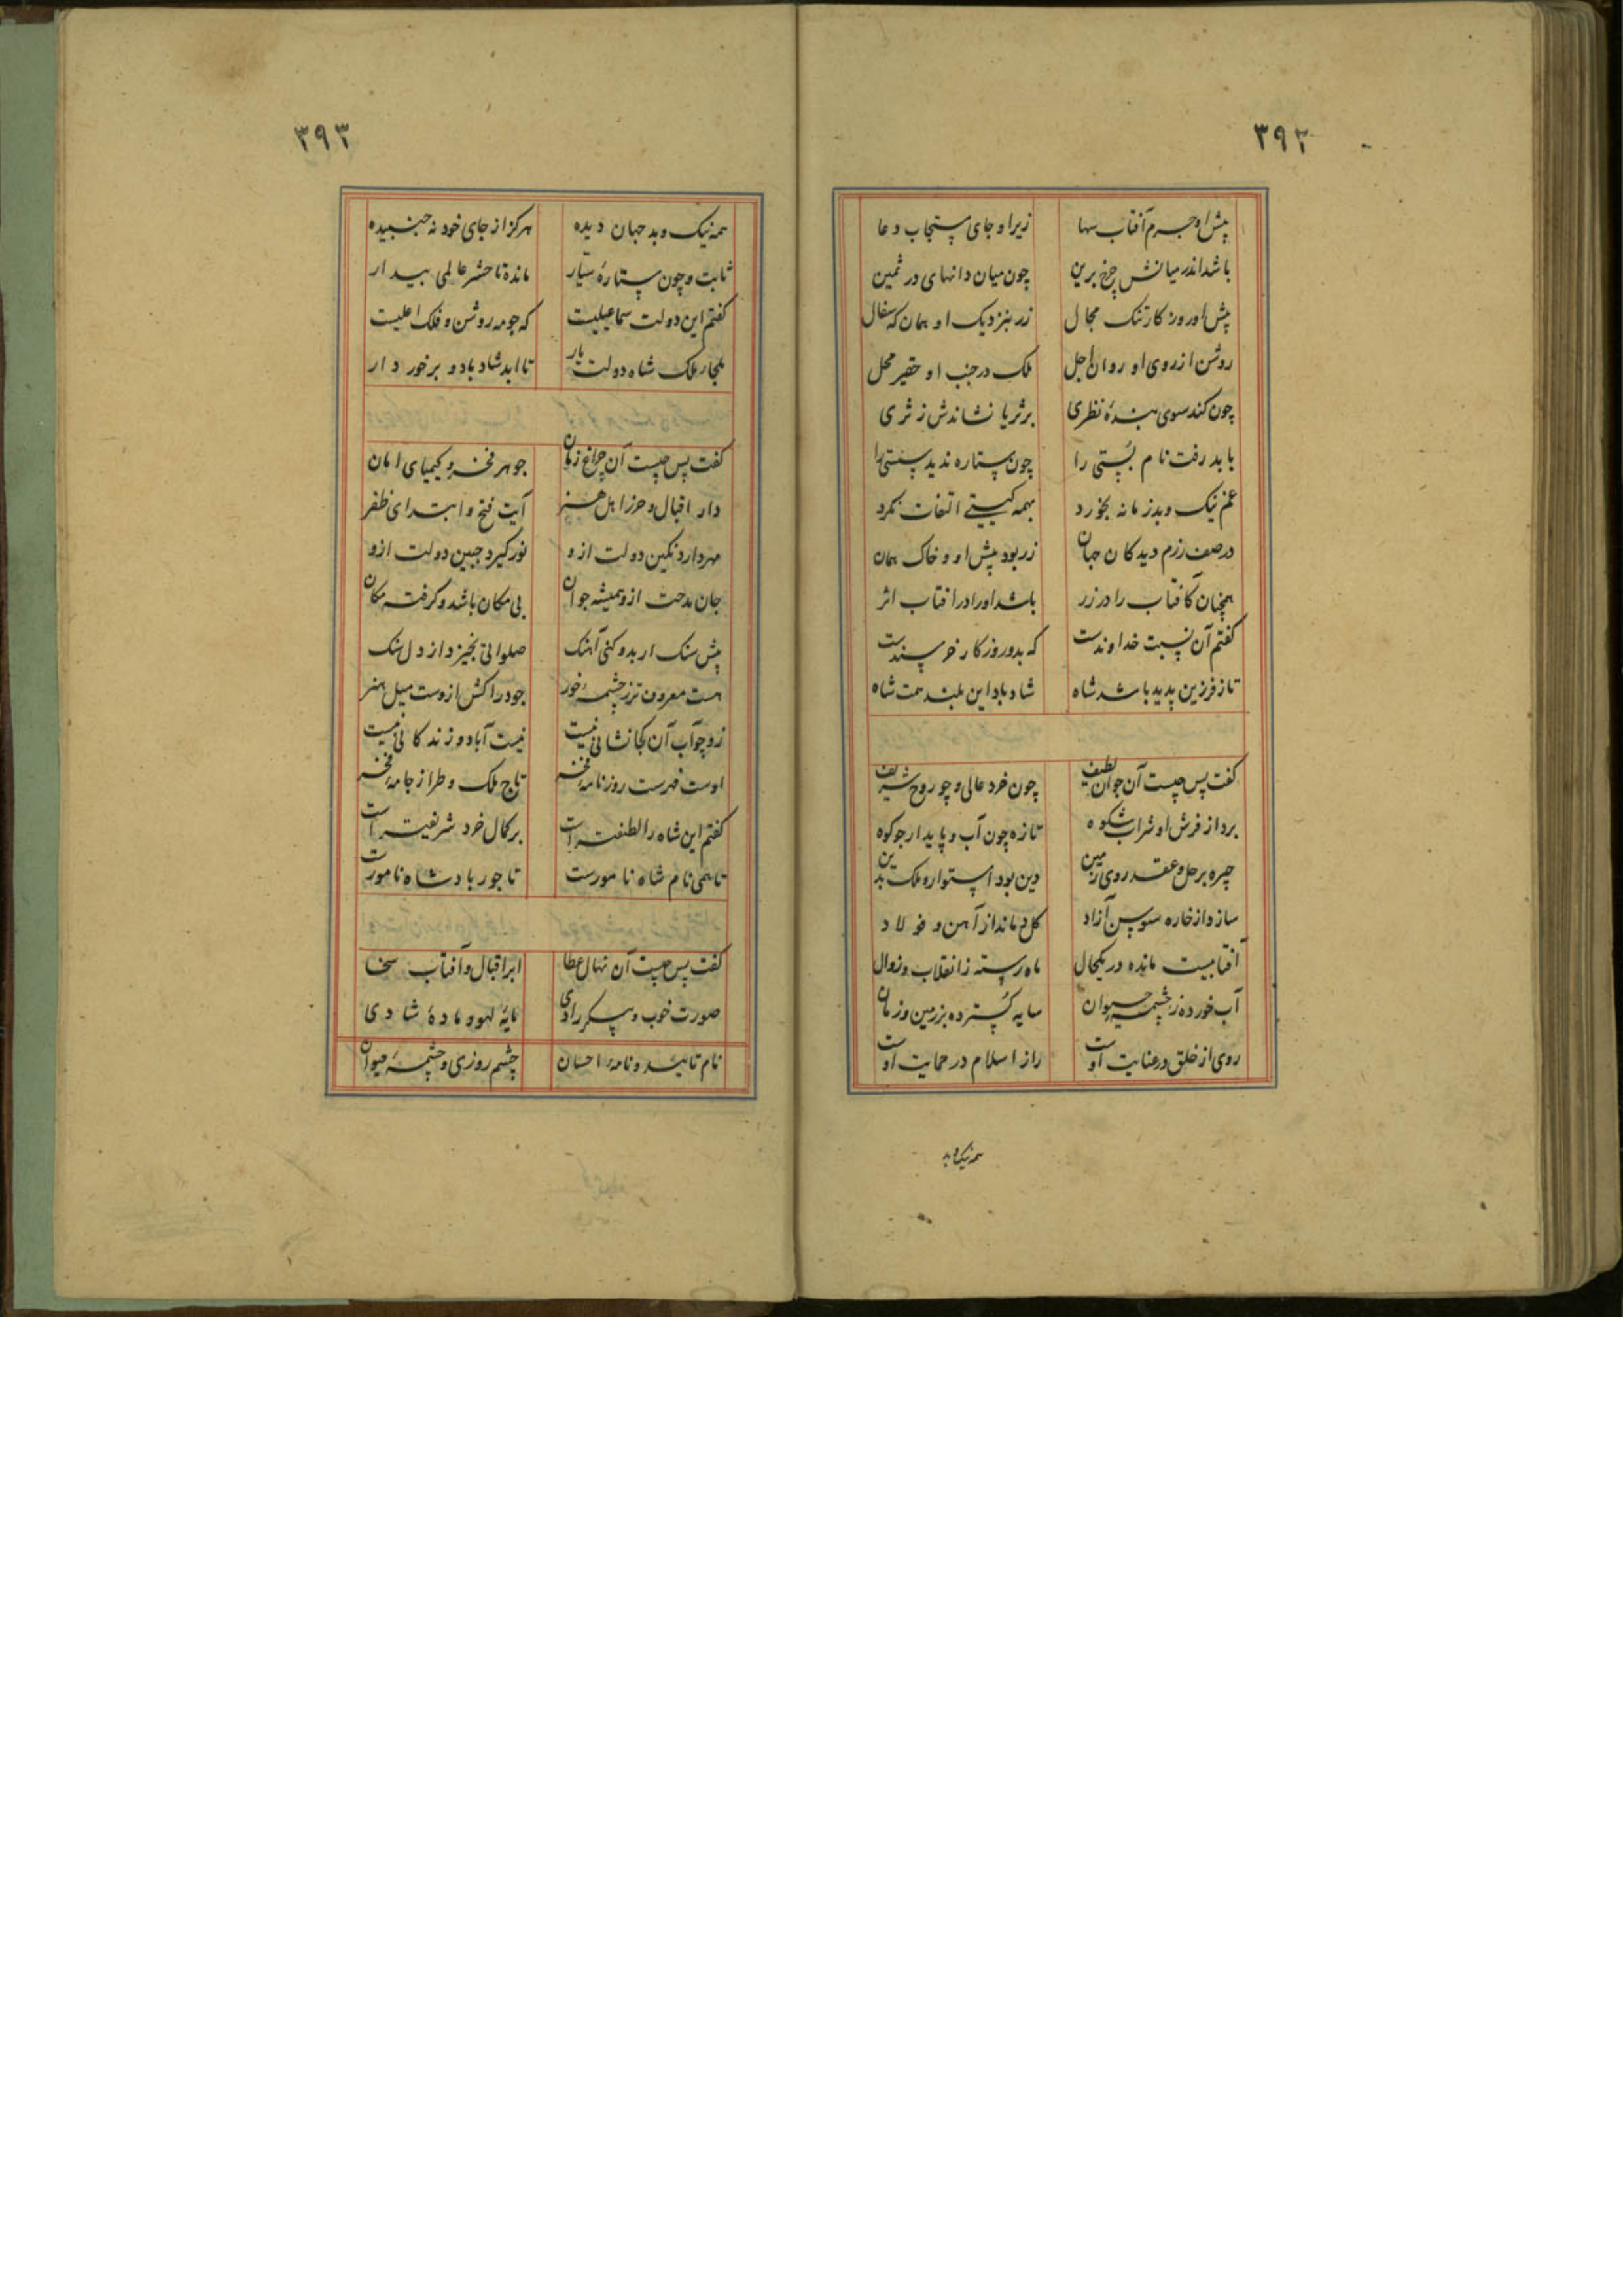 ٣٩٢
پیش او جرم آفتاب سها زیر او جای مستجاب دعا
باشد اندر میانش چرخ برین چون میان دانهای در ثمین
پیش او روزکار تنک مجال زر بنزدیک او همان که سفال
روشن از روی او روان اجل ملک در جنب او حقیر محل
چون کند سوی بندهٔ نظری بر ثریا نشاندش ز ثری
باید رفت نام پستی را چون ستاره ندید پستی را
غم نیک و بد زمانه نخورد بهمه کیتی التفات نکرد
در صف رزم دیدکان جهان زر بود پیش او و خاک همان
همچنان کآفتاب را در زر باشد او را در افتاب اثر
کفتم آن نسبت خداوندست که بدو روزکار خرسندست
تا ز فرزین پدید باشد شاه شاد باد این بلند همت شاه
کفت پس چیست آن جوان لطیف چون خرد عالی و چو روح شریف
بردار فرش او شراب شکوه تازه چون آب و پایدار چو کوه
چیره بر حل و عقد روی زمین دین بود استوار و ملک بدین
سازد از خاره سوسن آزاد کل دماند از آهن و فولاد
آفتابیست مانده در یکحال ماه رسته ز انقلاب و زوال
آب خورده ز چشمه حیوان سایه کسترده بر زمین و زمان
روی از خلق در عنایت اوست راز اسلام در حمایت اوست
همه نیک و بد
٣٩٣
همه نیک و بد جهان دیده هرکز از جای خود نه جنبیده
ثابت و چون ستارهٔ سیار مانده تا حشر عالمی بیدار
کفتم این دولت سماعیلیست که چو مه روشن و فلک اعلیست
ملک شاه دولت یار تا ابد شاد باد و برخوردار
کفت پس چیست آن چراغ زمان جوهر فخر و کیمیای امان
دار اقبال و حرز اهل هنر آیت فتح و ابتدای ظفر
مهر دارد نکین دولت ازو نور کیرد جبین دولت ازو
جان مدحت ازو همیشه جوان بی مکان باشد و کرفته مکان
پیش سنک ار بدو کنی آهنک صلواتی بخیزد از دل سنک
هست معروف تر ز چشمهٔ خور جود را کش ازوست میل هنر
زو چو آب آن کجا نشانی نیست نیست آباد و زندکانی نیست
اوست فهرست روزنامهٔ فخر تاج ملک و طراز جامهٔ فخر
کفتم این شاه را لطیفتر است بر کمال خرد شریفتر است
تا همی نام شاه نامورست تاجور باد شاه نامورت
کفت پس چیست آن نهال عطا ابر اقبال و آفتاب سخا
صورت خوب و پیکر رادی مایهٔ لهو و مادهٔ شادی
نام تائید و نامهٔ احسان چشم روزی و چشمهٔ حیوان